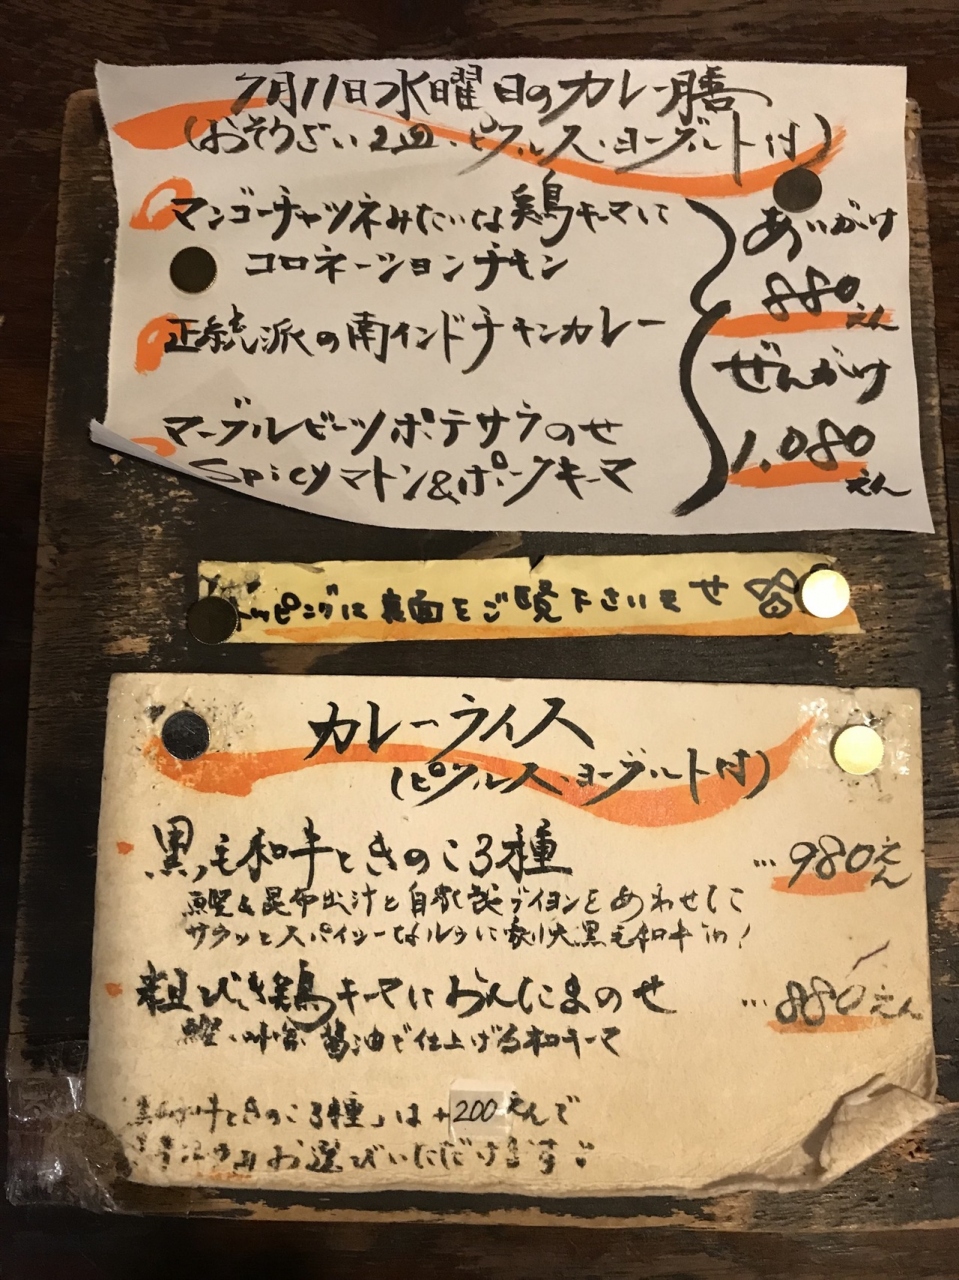 7月11日水曜日のカレー膳
(おそうざい2皿・ピクルス・ヨーグルト付)
マンゴーチャツネみたいな鶏キーマに
コロネーションチキン
正統派の南インドチキンカレー
マーブルビーツポテサラのせ
Spicyマトン&ポークキーマ
あいがけ
880えん
ぜんがけ
1,080えん
トッピングは裏面をご覧下さいませ
カレーライス
(ピクルス・ヨーグルト付)
黒毛和牛ときのこ3種 …980えん
鰹&昆布出汁と自家製ブイヨンをあわせた
サラッとスパイシーなルウに黒毛和牛in!
粗びき鶏キーマにおんたまのせ …880えん
鰹・味噌・醤油で仕上げる和キーマ
黒毛和牛ときのこ3種」は+200えんで
お選びいただけます